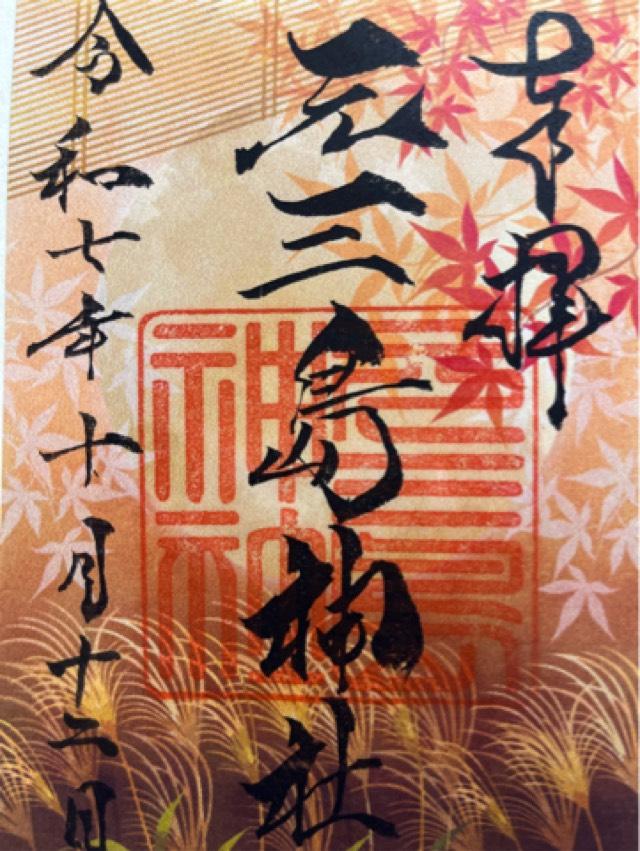 奉拝
元三島神社
令和七年十月十二日
三島
神社